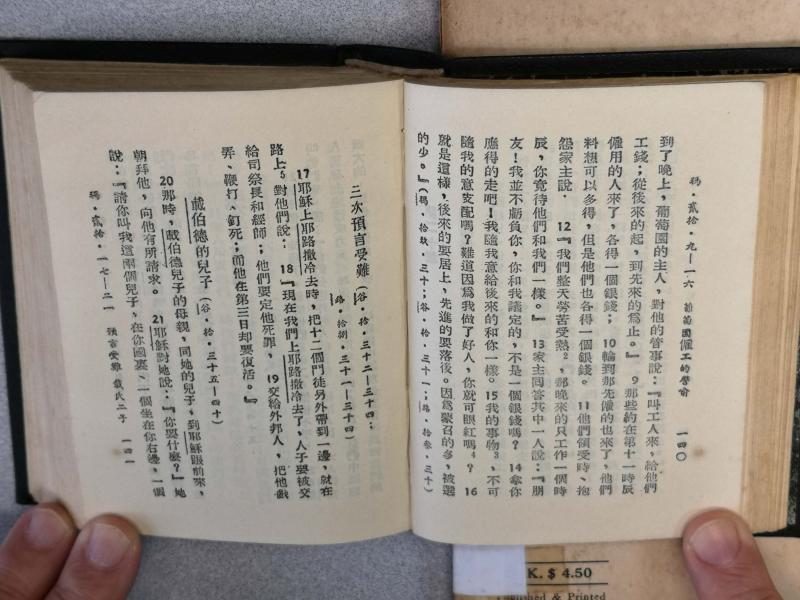 瑪·貳拾·九—一六　葡萄園僱工的譬喻　一四〇
到了晚上，葡萄園的主人，對他的管事說：『叫工人來，給他們
工錢；從後來的起，到先來的爲止。』 9 那些約在第十一時辰
僱用的人來了，各得一個銀錢； 10 輪到那先僱的也來了，他們
料想可以多得，但是他們也各得一個銀錢。 11 他們領受時，抱
怨家主說． 12『我們整天勞苦受熱²，那晚來的只工作一個時
辰，你竟待他們和我們一樣。』 13 家主回答其中一人說：『朋
友！我並不虧負你，你和我議定的，不是一個銀錢嗎？ 14 拿你
應得的走吧！我隨我意給後來的和你一樣。15 我的事物³，不可
隨我的意支配嗎？難道因爲我做了好人，你就可眼紅嗎⁴？ 16
就是這樣，後來的要居上，先進的要落後。因爲蒙召的多，被選
的少。』（瑪·拾玖·三十；谷·拾·三十一；路·拾叁·三十）
三次預言受難（谷·拾·三十二—三十四；
路·拾捌·三十一—三十四）
17 耶穌上耶路撒冷去時，把十二個門徒另外帶到一邊，就在
路上⁵對他們說： 18『現在我們上耶路撒冷去了，人子要被交
給司祭長和經師；他們要定他死罪， 19 交給外邦人，把他戲
弄、鞭打、釘死；而他在第三日却要復活。』
戴伯德的兒子（谷·拾·三十五—四十）
20 那時，戴伯德兒子的母親，同她的兒子，到耶穌跟前來，
朝拜他，向他有所請求。 21 耶穌對她說：『你要什麼？』她
說：『請你叫我這兩個兒子，在你國裏，一個坐在你右邊，一個
瑪·貳拾·一七—二一　預言受難 戴氏二子　一四一
K. $ 4.50
Published & Printed